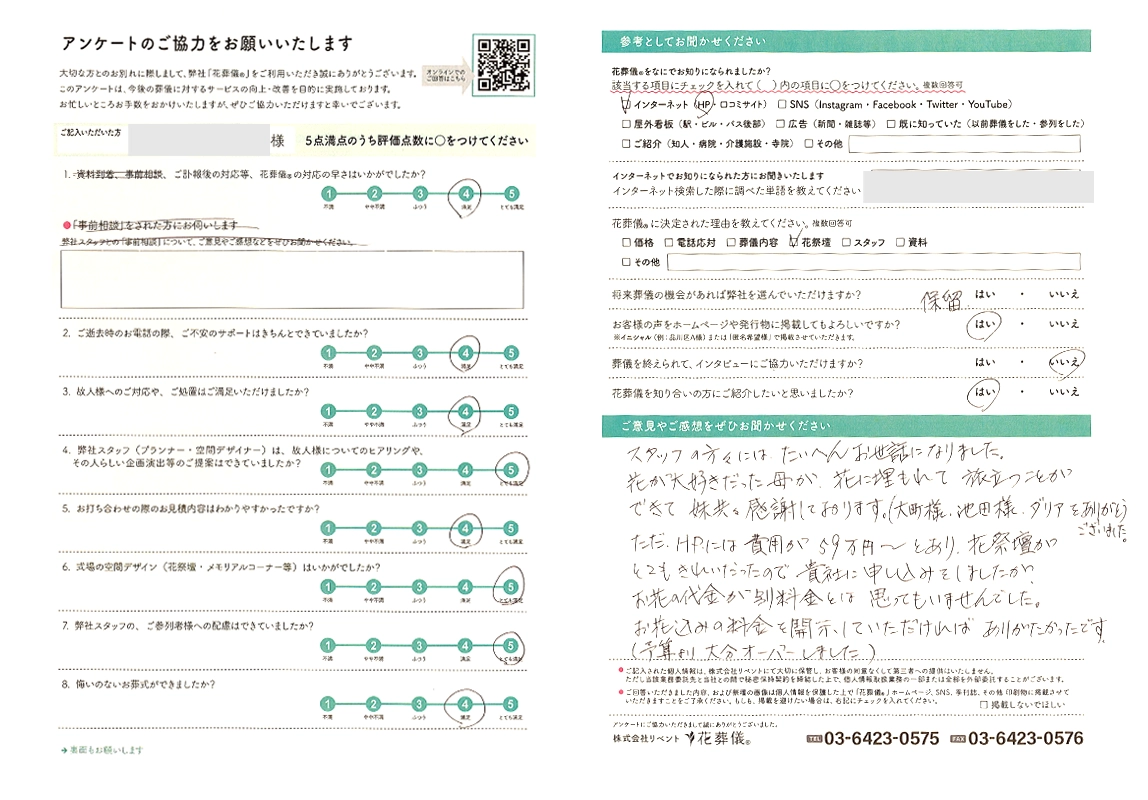 アンケートのご協力をお願いいたします
大切な方とのお別れに際しまして、弊社「花葬儀®」をご利用いただき誠にありがとうございます。
このアンケートは、今後の葬儀に対するサービスの向上・改善を目的に実施しております。
お忙しいところお手数をおかけいたしますが、ぜひご協力いただけますと幸いでございます。
オンラインでの
ご回答はこちら
ご記入いただいた方
様
5点満点のうち評価点数に○をつけてください
1. 資料到着、事前相談、ご訃報後の対応等、花葬儀®の対応の早さはいかがでしたか?
1 2 3 4 5
不満 やや不満 ふつう 満足 とても満足
「事前相談」をされた方にお伺いします
弊社スタッフとの「事前相談」について、ご意見やご感想などをぜひお聞かせください。
2. ご逝去時のお電話の際、ご不安のサポートはきちんとできていましたか?
1 2 3 4 5
不満 やや不満 ふつう 満足 とても満足
3. 故人様へのご対応や、ご処置はご満足いただけましたか?
1 2 3 4 5
不満 やや不満 ふつう 満足 とても満足
4. 弊社スタッフ(プランナー・空間デザイナー)は、故人様についてのヒアリングや、
その人らしい企画演出等のご提案はできていましたか?
1 2 3 4 5
不満 やや不満 ふつう 満足 とても満足
5. お打ち合わせの際のお見積内容はわかりやすかったですか?
1 2 3 4 5
不満 やや不満 ふつう 満足 とても満足
6. 式場の空間デザイン(花祭壇・メモリアルコーナー等)はいかがでしたか?
1 2 3 4 5
不満 やや不満 ふつう 満足 とても満足
7. 弊社スタッフの、ご参列者様への配慮はできていましたか?
1 2 3 4 5
不満 やや不満 ふつう 満足 とても満足
8. 悔いのないお葬式ができましたか?
1 2 3 4 5
不満 やや不満 ふつう 満足 とても満足
→裏面もお願いします
参考としてお聞かせください
花葬儀®をなにでお知りになられましたか?
該当する項目にチェックを入れて( )内の項目に○をつけてください。複数回答可
インターネット(HP・口コミサイト) □SNS(Instagram・Facebook・Twitter・YouTube)
□屋外看板(駅・ビル・バス後部) □広告(新聞・雑誌等) □既に知っていた(以前葬儀をした・参列をした)
□ご紹介(知人・病院・介護施設・寺院) □その他
インターネットでお知りになられた方にお聞きいたします
インターネット検索した際に調べた単語を教えてください
花葬儀®に決定された理由を教えてください。複数回答可
□価格 □電話応対 □葬儀内容 花祭壇 □スタッフ □資料
□その他
将来葬儀の機会があれば弊社を選んでいただけますか? 保留 はい ・ いいえ
お客様の声をホームページや発行物に掲載してもよろしいですか? はい ・ いいえ
※イニシャル(例:品川区A様)または「匿名希望様」で掲載させていただきます。
葬儀を終えられて、インタビューにご協力いただけますか? はい ・ いいえ
花葬儀を知り合いの方にご紹介したいと思いましたか? はい ・ いいえ
ご意見やご感想をぜひお聞かせください
スタッフの方々には たいへんお世話になりました。
花が大好きだった母が、花に埋もれて 旅立つことが
できて 妹共々感謝しております。(大町様、池田様、ダリアをありがとう
ございました。
ただ、HPには 費用が 59万円〜とあり、花祭壇が
とてもきれいだったので 貴社に申し込みをしましたが、
お花の代金が別料金とは 思ってもいませんでした。
お花込みの料金を開示していただければ ありがたかったです
(予算より大分オーバーしました)
ご記入された個人情報は、株式会社リベントにて大切に保管し、お客様の同意なくして第三者への提供はいたしません。
ただし当該業務委託先と当社との間で秘密保持契約を締結した上で、個人情報取扱業務の一部または全部を外部委託することがございます。
ご回答いただきました内容、および祭壇の画像は個人情報を保護した上で「花葬儀®」ホームページ、SNS、季刊誌、その他印刷物に掲載させて
いただきますことをご了承ください。もしも、掲載を避けたい場合は、右記にチェックを入れてください。 □掲載しないでほしい
アンケートにご協力いただきまして誠にありがとうございました。
株式会社リベント 花葬儀® TEL 03-6423-0575 FAX 03-6423-0576